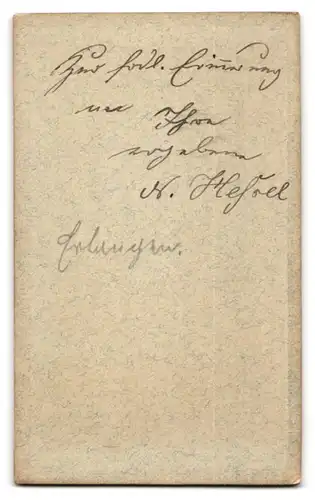 Zur frdl. Erinnerung
an Ihre
ergebene
N. Hessel
Erlangen.